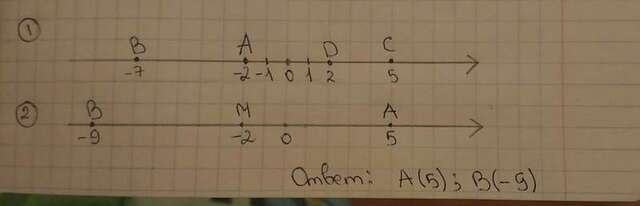 1
B A D C
-7 -2 -1 0 1 2 5
2
B M A
-9 -2 0 5
Ответ: A(5); B(-9)